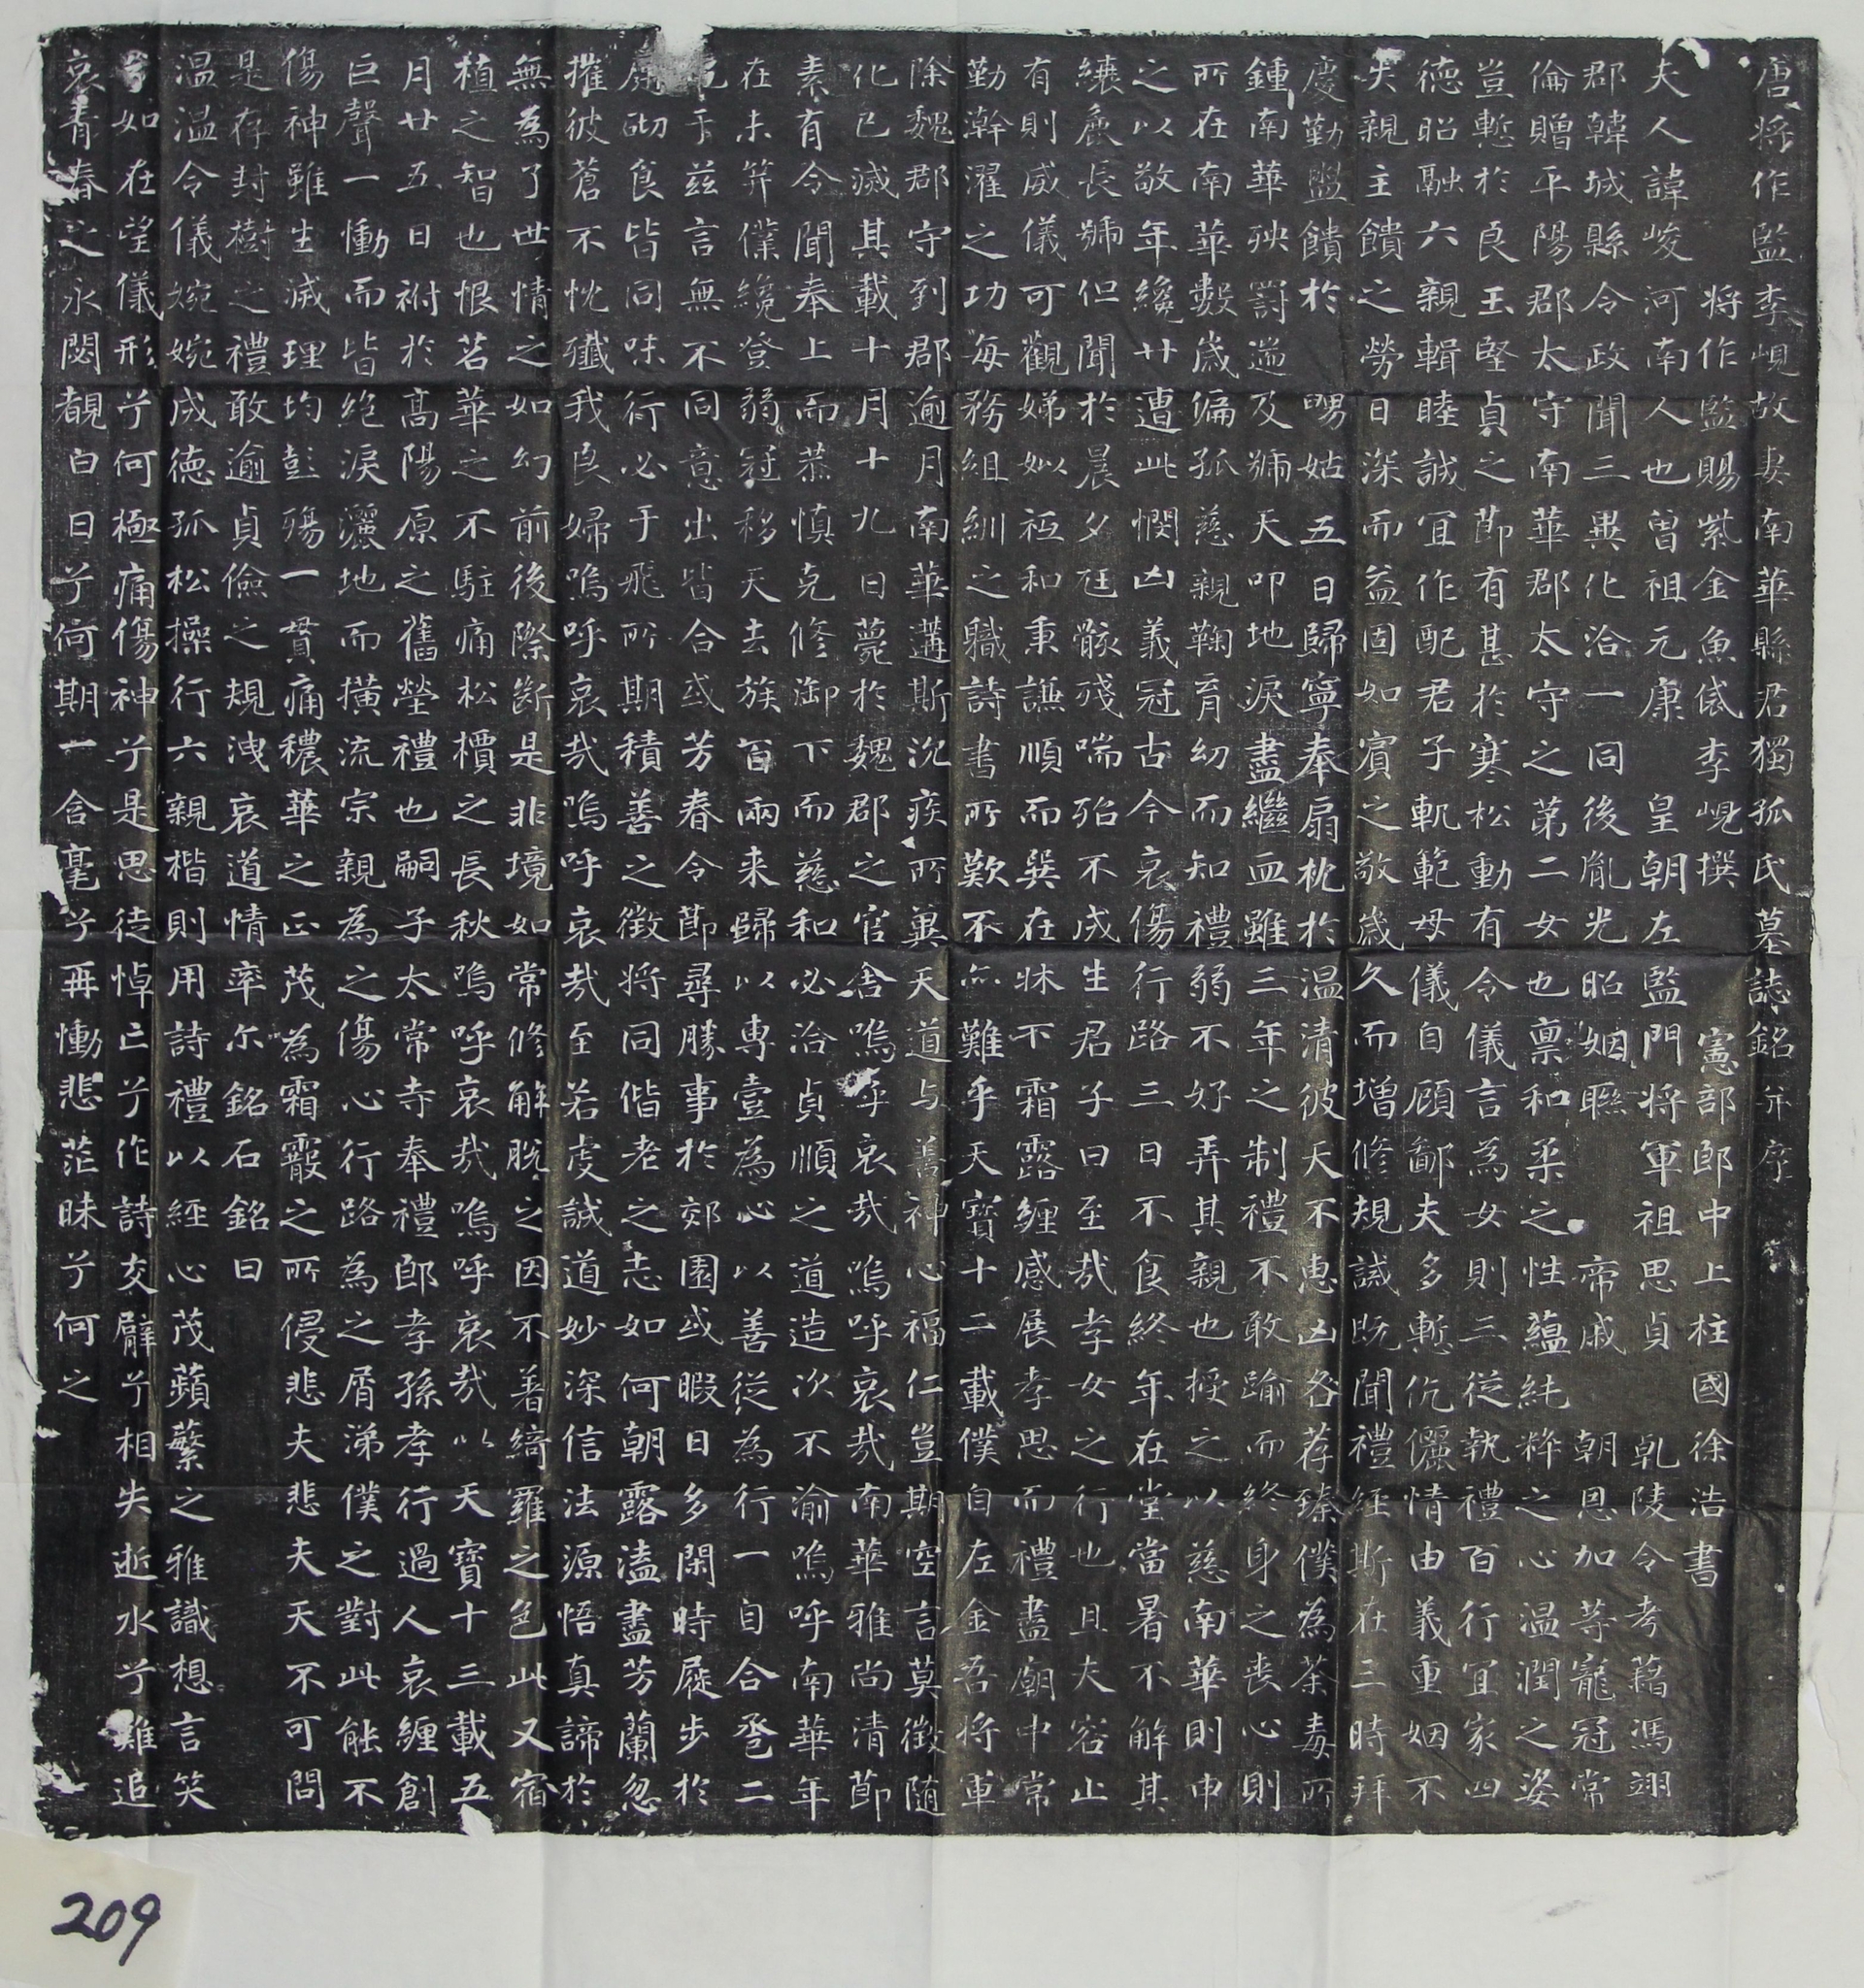 唐將作監李峴故妻南華縣君獨孤氏墓誌銘并序
將作監賜紫金魚袋李峴撰 憲部郎中上柱國徐浩書
夫人諱峻河南人也曾祖元康 皇朝左監門將軍祖思貞 乹陵令考藉馮翊
郡韓城縣令政聞三異化洽一同後胤光昭姻聯 帝戚 朝恩加等寵冠常
倫贈平陽郡太守南華郡太守之第二女也禀和柔之性蘊純粹之心温潤之姿
豈慙於良玉堅貞之節有甚於寒松動有令儀言為女則三從執禮百行宜家四
德昭融六親輯睦誠宜作配君子軌範母儀自顧鄙夫多慙伉儷情由義重姻不
失親主饋之勞日深而益固如賓之敬歲久而增修規誡既聞禮經斯在三時拜
慶勤盥饋於 舅姑五日歸寧奉扇枕於温清彼天不惠凶咎荐臻僕為荼毒所
鍾南華殃罰遄及號天叩地淚盡繼血雖三年之制禮不敢踰而終身之喪心則
所在南華數歲偏孤慈親鞠育幼而知禮弱不好弄其親也授之以慈南華則申
之以敬年纔廿遭此憫凶義冠古今哀傷行路三日不食終年在堂當暑不解其
縗麁長號但聞於晨夕尫骸殘喘殆不成生君子曰至哉孝女之行也且夫容止
有則威儀可觀娣姒祗和秉謙順而巽在牀下霜露纏感展孝思而禮盡廟中常
勤澣濯之功每務組紃之職詩書所歎不亦難乎天寶十二載僕自左金吾將軍
除魏郡守到郡逾月南華遘斯沉疾所冀天道与善神心福仁豈期空言莫徵随
化已滅其載十月十九日薨於魏郡之官舍嗚乎哀哉嗚呼哀哉南華雅尚清節
素有令聞奉上而恭慎克修御下而慈和必洽貞順之道造次不渝嗚呼南華年
在未笄僕纔登弱冠移天去族百兩来歸以專壹為心以善從為行一自合巹二
紀于茲言無不同意出皆合或芳春令節尋勝事於郊園或暇日多閑時屣步於
庭砌食皆同味行必于飛所期積善之徵將同偕老之志如何朝露溘盡芳蘭忽
摧彼蒼不忱殲我良婦嗚呼哀哉嗚呼哀哉至若虔誠道妙深信法源悟真諦於
無為了世情之如幻前後際斷是非境如常修解脫之因不著綺羅之色此又宿
植之智也恨苕華之不駐痛松檟之長秋嗚呼哀哉嗚呼哀哉以天寶十三載五
月廿五日祔於高陽原之舊塋禮也嗣子太常寺奉禮郎孝孫孝行過人哀纏創
巨聲一慟而皆絶淚灑地而横流宗親為之傷心行路為之屑涕僕之對此能不
傷神雖生滅理均彭殤一貫痛穠華之正茂為霜霰之所侵悲夫悲夫天不可問
是存封樹之禮敢逾貞儉之規洩哀道情率尒銘石銘曰
温温令儀婉婉成德孤松操行六親楷則用詩禮以經心茂蘋蘩之雅識想言笑
兮如在望儀形兮何極痛傷神兮是思徒悼亡兮作詩交臂兮相失逝水兮難追
哀青春之永閟覩白日兮何期一含毫兮再慟悲茫昧兮何之
209